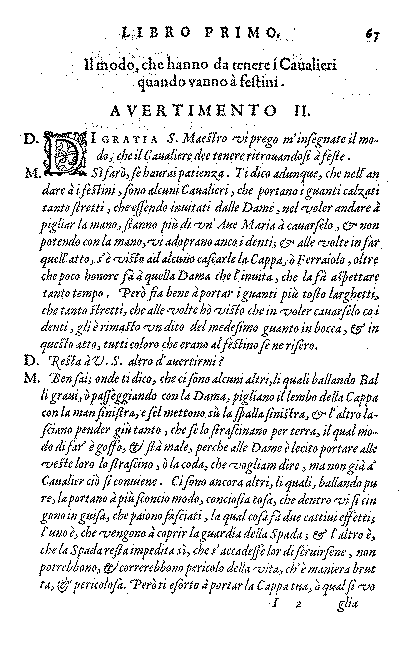 LIBRO PRIMO. 67
Il modo, che hanno da tenere i Caualieri
quando vanno à festini.
AVERTIMENTO II.
D. DI GRATIA S. Maestro vi prego m'insegnate il mo-
do, che il Caualiere dee tenere ritrouandosi à feste.
M. Si farò, se haurai patienza. Ti dico adunque, che nell'an
dare à i festini, sono alcuni Caualieri, che portano i guanti calzati
tanto stretti, che essendo inuitati dalle Dame, nel voler andare à
pigliar la mano, stanno più di vn' Aue Maria à cauarselo, & non
potendo con la mano, vi adoprano anco i denti; & alle volte in far
quell'atto, s'è visto ad alcuno cascarle la Cappa, ò Ferraiolo, oltre
che poco honore fà à quella Dama che l'inuita, che la fà aspettare
tanto tempo. Però stia bene à portar i guanti più tosto larghetti,
che tanto stretti, che alle volte hò visto che in voler cauarselo co i
denti, gli è rimasto vn dito del medesimo guanto in bocca, & in
questo atto, tutti coloro che erano al festino se ne risero.
D. Resta à V. S. altro d'auertirmi?
M. Ben sai; onde ti dico, che ci sono alcuni altri, li quali ballando Bal
li graui, ò passeggiando con la Dama, pigliano il lembo della Cappa
con la man sinistra, e sel mettono sù la spalla sinistra, & l'altro la-
sciano pender giù tanto, che se lo strascinano per terra, il qual mo-
do di far' è goffo, & stà male, perche alle Dame è lecito portare alle
veste loro lo strascino, ò la coda, che vogliam dire, ma non già à
Caualier ciò si conuiene. Ci sono ancora altri, li quali, ballando pu
re, la portano à più sconcio modo, conciosia cosa, che dentro vi si cin
gono in guisa, che paiono fasciati, la qual cosa fà due cattiui effetti;
l'uno è, che vengono à coprir la guardia della Spada; & l'altro è,
che la Spada resta impedita sì, che s'accadesse lor di seruirsene, non
potrebbono, & correrebbono pericolo della vita, ch'è maniera brut
ta, & pericolosa. Però ti esorto à portar la Cappa tua, ò qual si vo
I 2 glia